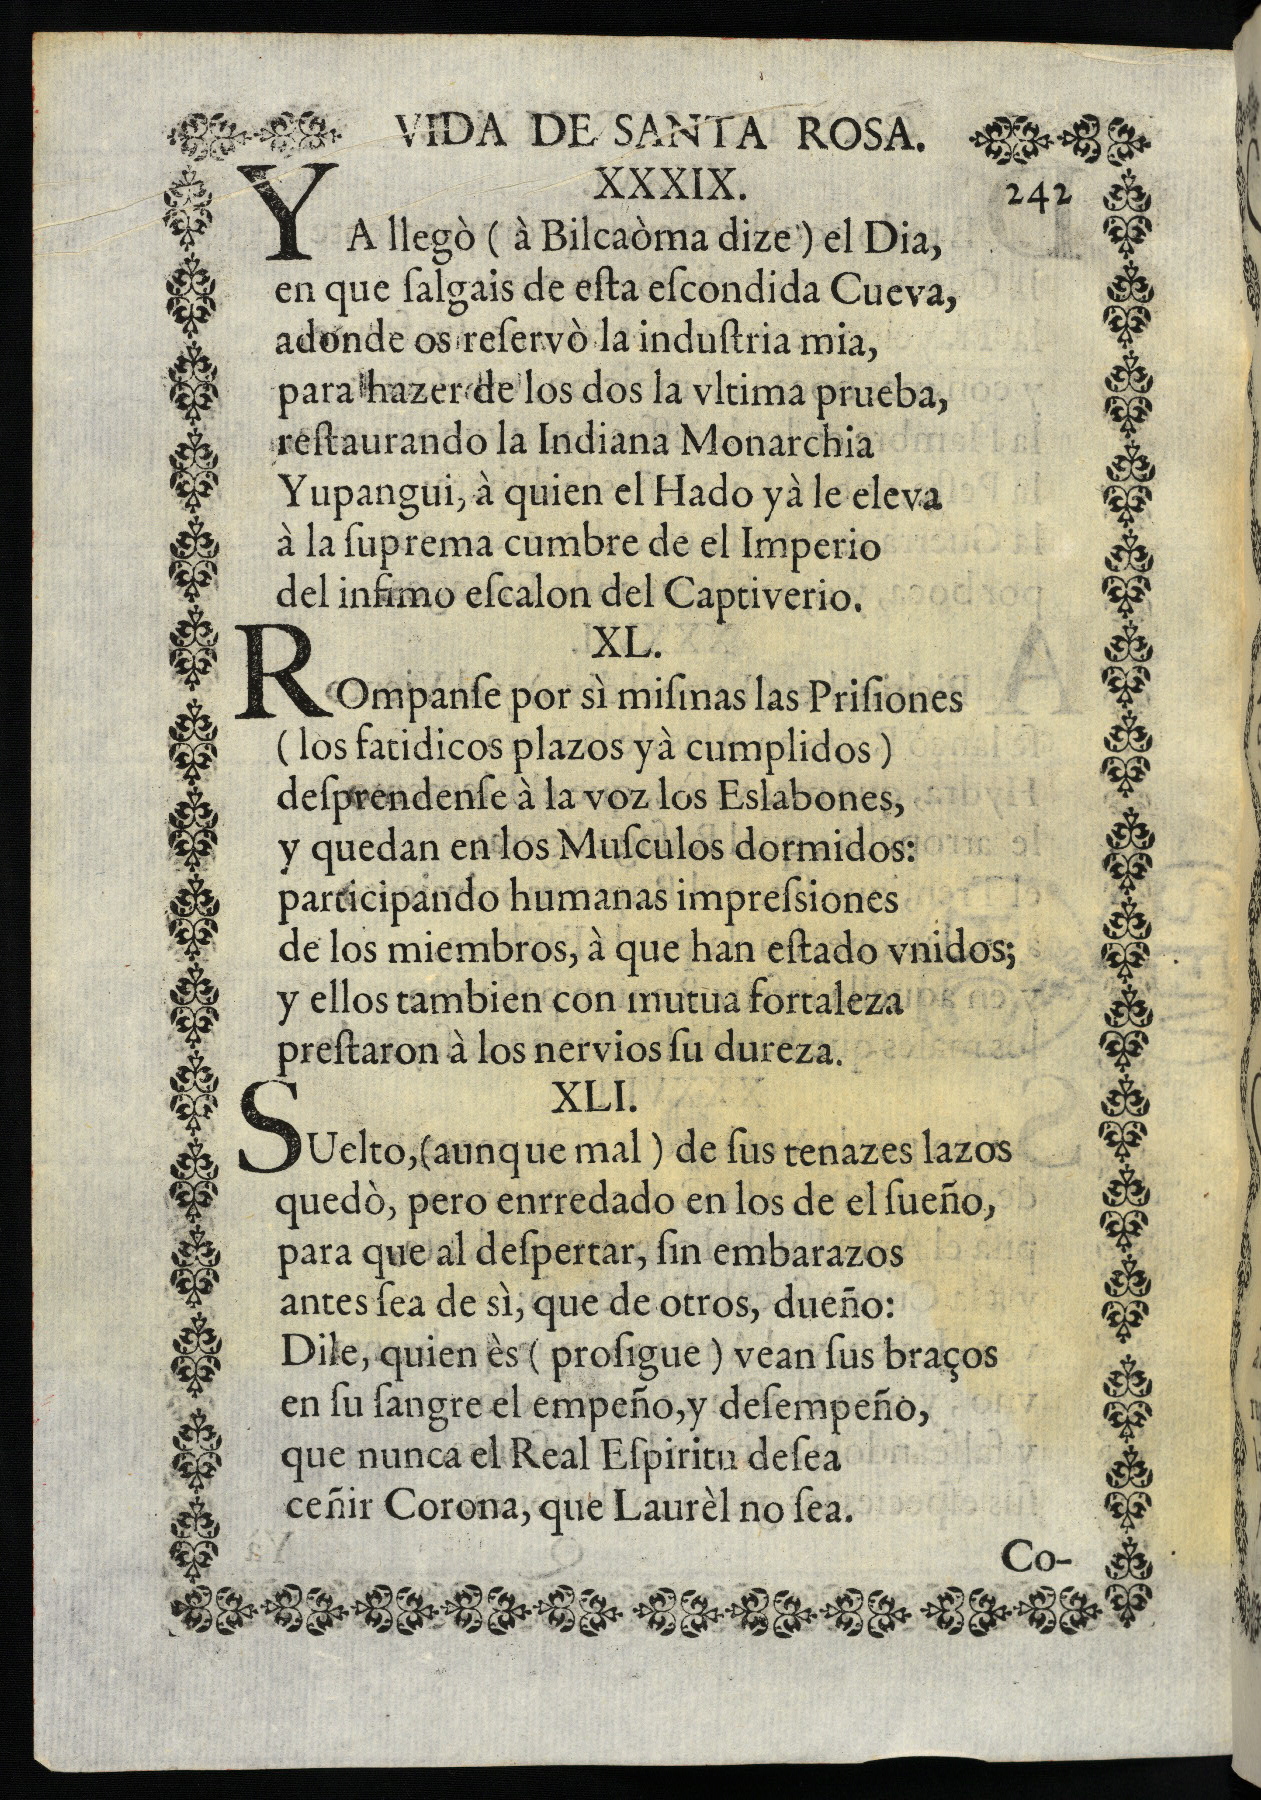 VIDA DE SANTA ROSA.
XXXIX. 242
YA llegò ( à Bilcaòma dize ) el Dia,
en que ſalgais de eſta eſcondida Cueva,
adonde os reſervò la induſtria mia,
para hazer de los dos la vltima prueba,
reſtaurando la Indiana Monarchia
Yupangui, à quien el Hado yà le eleva
à la ſuprema cumbre de el Imperio
del infimo eſcalon del Captiverio.
XL.
ROmpanſe por sì miſmas las Priſiones
( los fatidicos plazos yà cumplidos )
deſprendenſe à la voz los Eslabones,
y quedan en los Muſculos dormidos:
participando humanas impreſsiones
de los miembros, à que han eſtado vnidos;
y ellos tambien con mutua fortaleza
preſtaron à los nervios ſu dureza.
XLI.
SUelto,(aunque mal ) de ſus tenazes lazos
quedò, pero enrredado en los de el ſueño,
para que al deſpertar, ſin embarazos
antes ſea de sì, que de otros, dueño:
Dile, quien ès ( proſigue ) vean ſus braços
en ſu ſangre el empeño,y deſempeño,
que nunca el Real Eſpiritu deſea
ceñir Corona, que Laurèl no ſea.
Co-